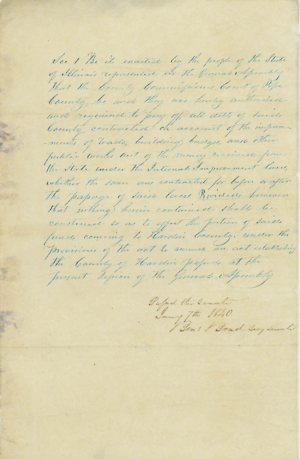 Sec 1 Be it enacted by the people of the State
of Illinois represented in the General Assembly
That the County Commissioners Court of Pope
County, be and they are hereby authorized
and required to pay off all debts of said
County, contracted on account of the improve-
ments of roads, building bridges, and other
public works out of the money received from
the State under the Internal Improvement law,
whether the same was contracted for before or after
the passage of said law Provided however
that nothing herein contained shall be
construed so as to effect the portion of said
fund coming to Hardin County, under the
provisions of the act to amend an act establishing
the County of Hardin passed at the
present Session of the General Assembly
Passed the Senate
Jany 7th 1840